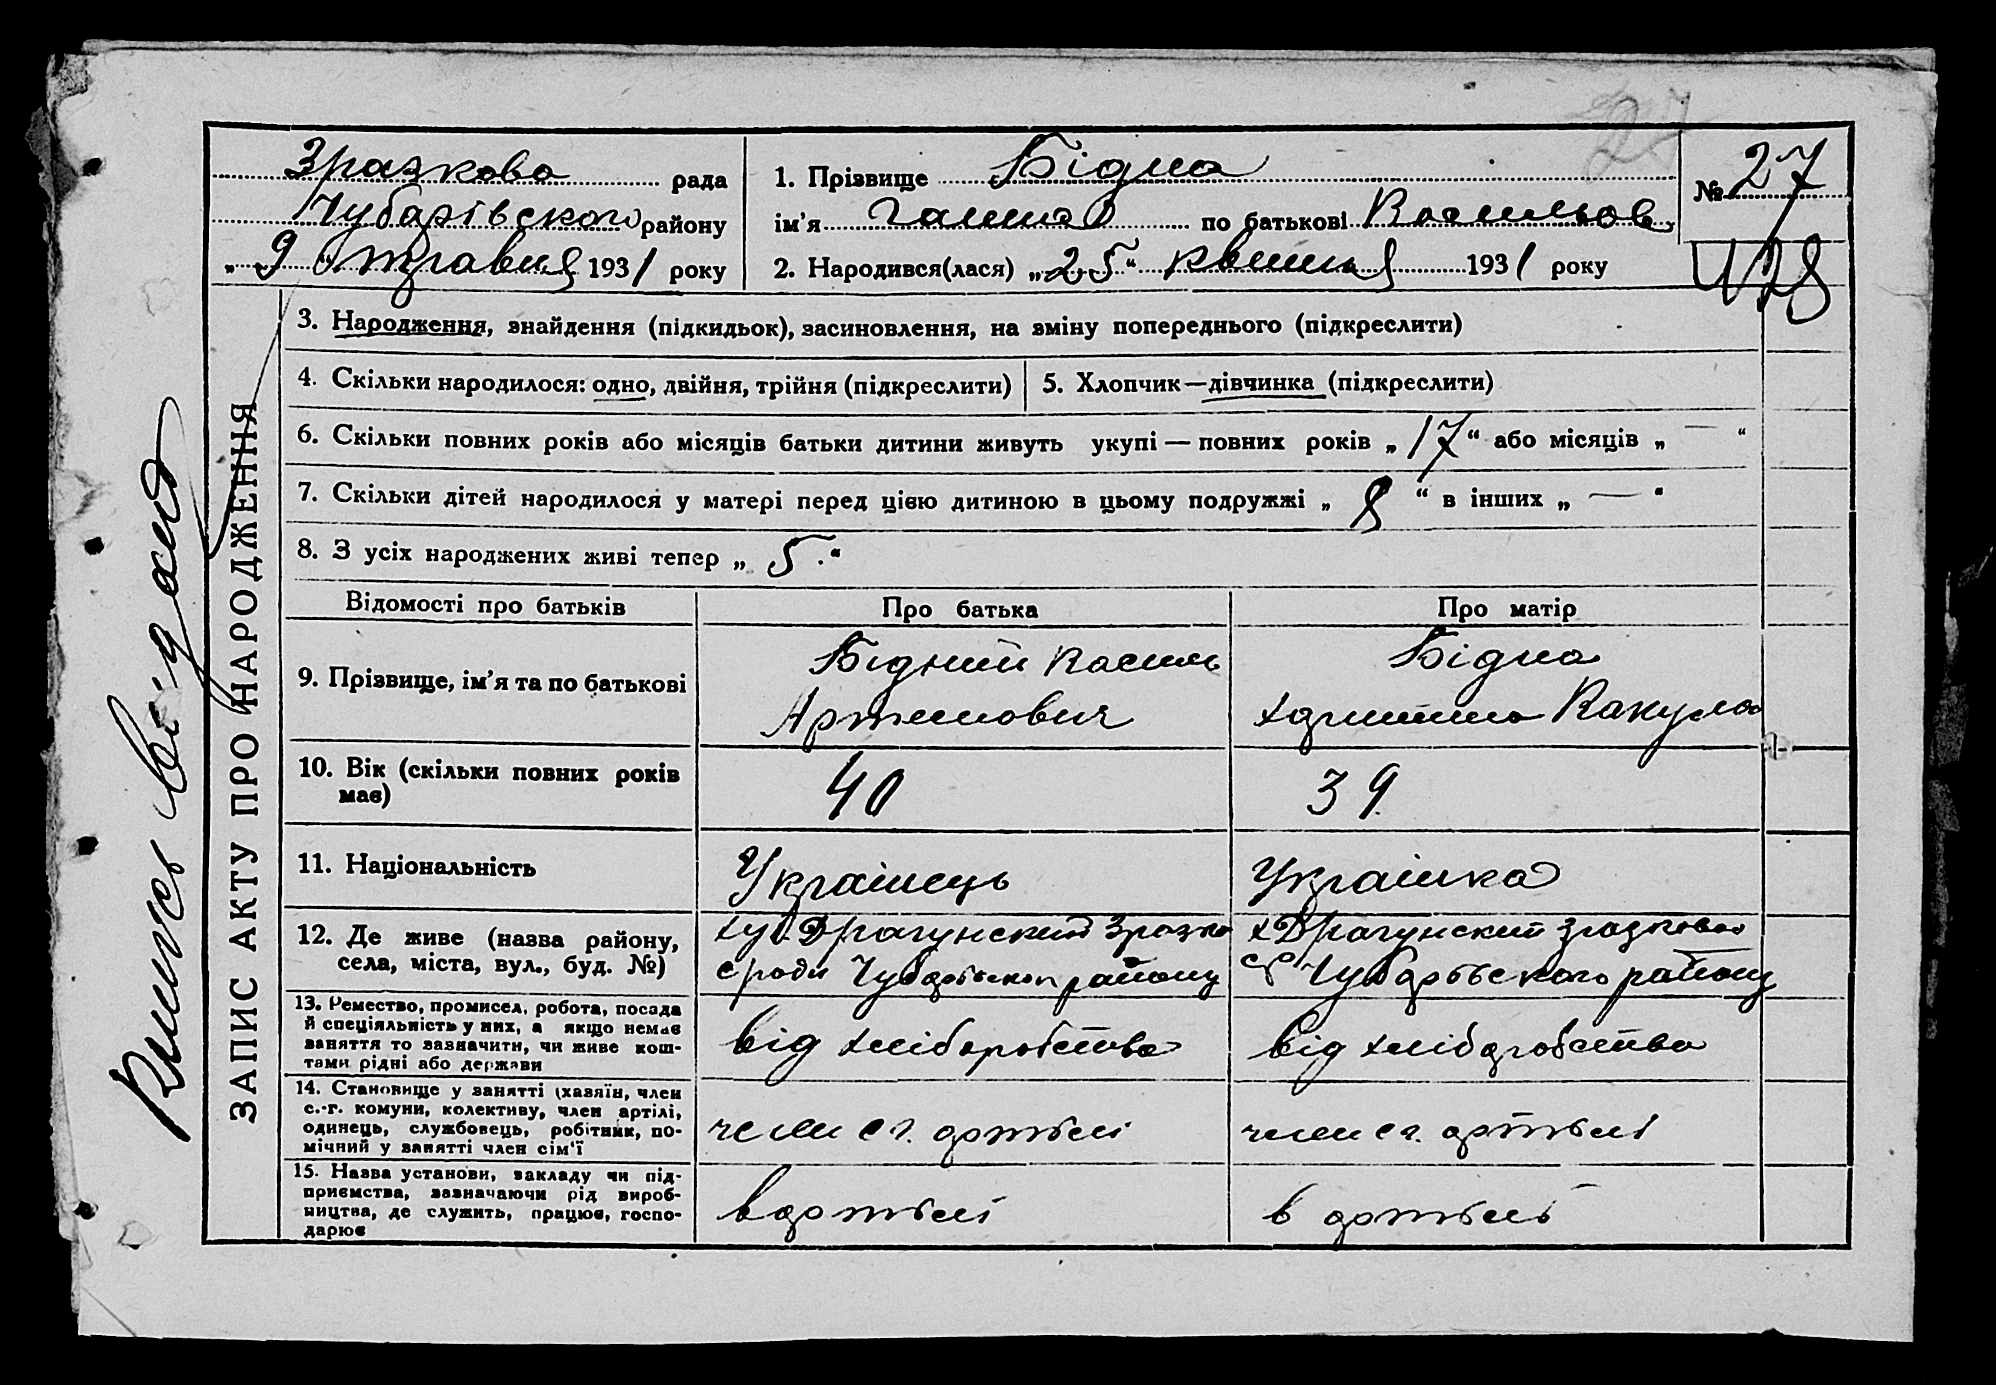 27
Зразкова рада
Чубарівського району
„ 9 “ травня 1931 року
1. Прізвище Бідна
ім'я Ганна по батькові Васильов.
2. Народився(лася) „25“ квитня 1931 року
№ 27
28
3. Народження, знайдення (підкидьок), засиновлення, на зміну попереднього (підкреслити)
4. Скільки народилося: одно, двійня, трійня (підкреслити)
5. Хлопчик—дівчинка (підкреслити)
6. Скільки повних років або місяців батьки дитини живуть укупі — повних років „ 17 “ або місяців „ — “
7. Скільки дітей народилося у матері перед цією дитиною в цьому подружжі „ 8 “ в інших „ — “
8. З усіх народжених живі тепер „ 5 “
Відомості про батьків
Про батька
Про матір
9. Прізвище, ім'я та по батькові
Бідний Василь
Артемович
Бідна
Вакулов
10. Вік (скільки повних років
має)
40
39
11. Національність
Українець
Українка
12. Де живе (назва району,
села, міста, вул., буд. №)
хут Драгунский Зразко
с ради Чубарівськог району
х Драгунский Зразково
с/р Чубарівського району
13. Ремество, промисел, робота, посада
й спеціяльність у них, а якщо немає
заняття то зазначити, чи живе кош-
тами рідні або держави
від хліборобства
від хліборобства
14. Становище у занятті (хазяїн, член
с.-г. комуни, колективу, член артілі,
одинець, службовець, робітник, по-
мічний у занятті член сім'ї
член с г. артілі
член с г. артілі
15. Назва установи, закладу чи під-
приємства, зазначаючи рід вироб-
ництва, де служить, працює, госпо-
дарює
в артілі
в артілі
ЗАПИС АКТУ ПРО НАРОДЖЕННЯ
Выпись видано